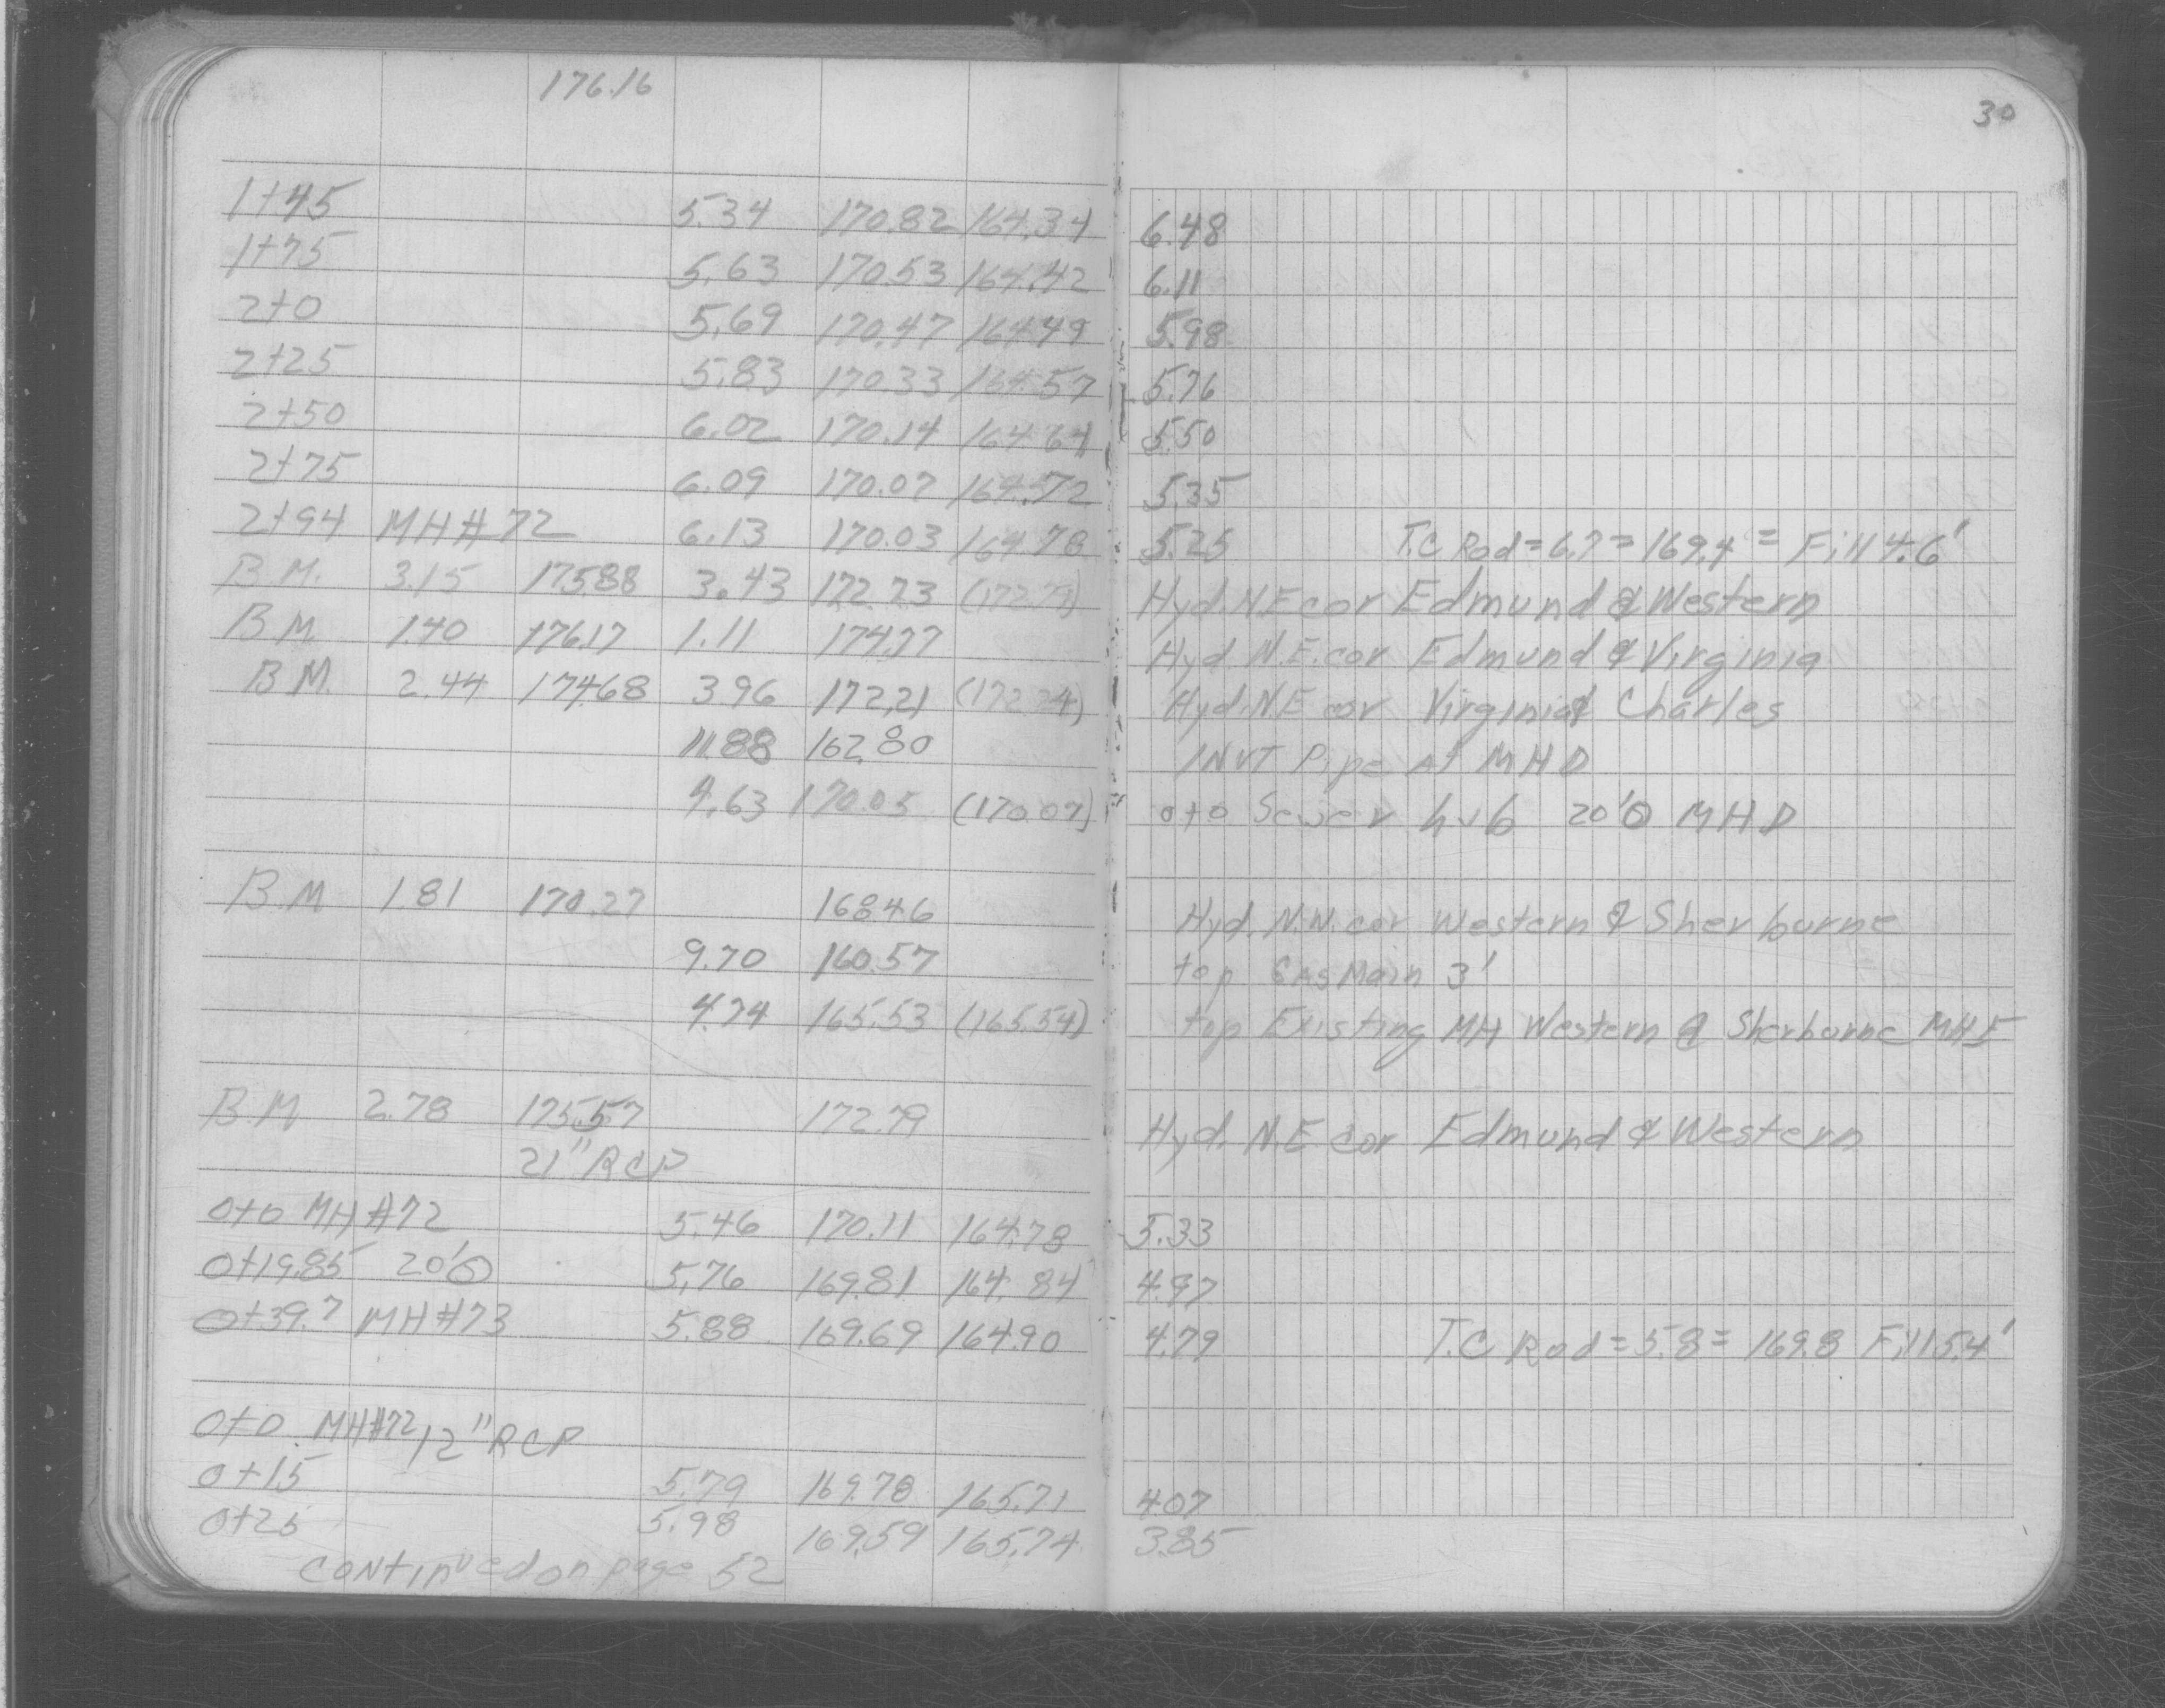 176.16
30
1+45 5.34 170.82 164.34 6.48
1+75 5.63 170.53 164.42 6.11
2+0 5.69 170.47 164.49 5.98
2+25 5.83 170.33 164.57 5.76
2+50 6.02 170.14 164.64 5.50
2+75 6.09 170.07 164.72 5.35
2+94 MH#72 6.13 170.03 164.78 5.25 T.C Rod=6.7=169.4 = Fill 4.6'
B.M. 3.15 175.88 3.43 172.73 (172.79) Hyd. N.E cor Edmund & Western
B.M. 1.40 176.17 1.11 174.77 Hyd. N.E. cor Edmund & Virginia
B.M. 2.44 174.68 3.96 172.21 (172.24) Hyd. N.E cor Virginia & Charles
11.88 162.80 INVT Pipe At MHD
4.63 170.05 (170.07) 0+0 Sewer hub 20'O MHD
B.M 1.81 170.27 168.46 Hyd. N.W. cor Western & Sherburne
9.70 160.57 top GAS Main 3'
4.74 165.53 (165.54) top Existing MH Western & Sherburne MHE
B.M 2.78 175.57 172.79 Hyd. N.E cor Edmund & Western
21" RCP
0+0 MH#72 5.46 170.11 164.78 5.33
0+19.85 20'O 5.76 169.81 164.84 4.97
0+39.7 MH#73 5.88 169.69 164.90 4.79 T.C Rod=5.8= 169.8 Fill 5.4'
0+0 MH#72 12" RCP
0+15 5.79 169.78 165.71 4.07
0+25 5.98 169.59 165.74 3.85
continued on page 52